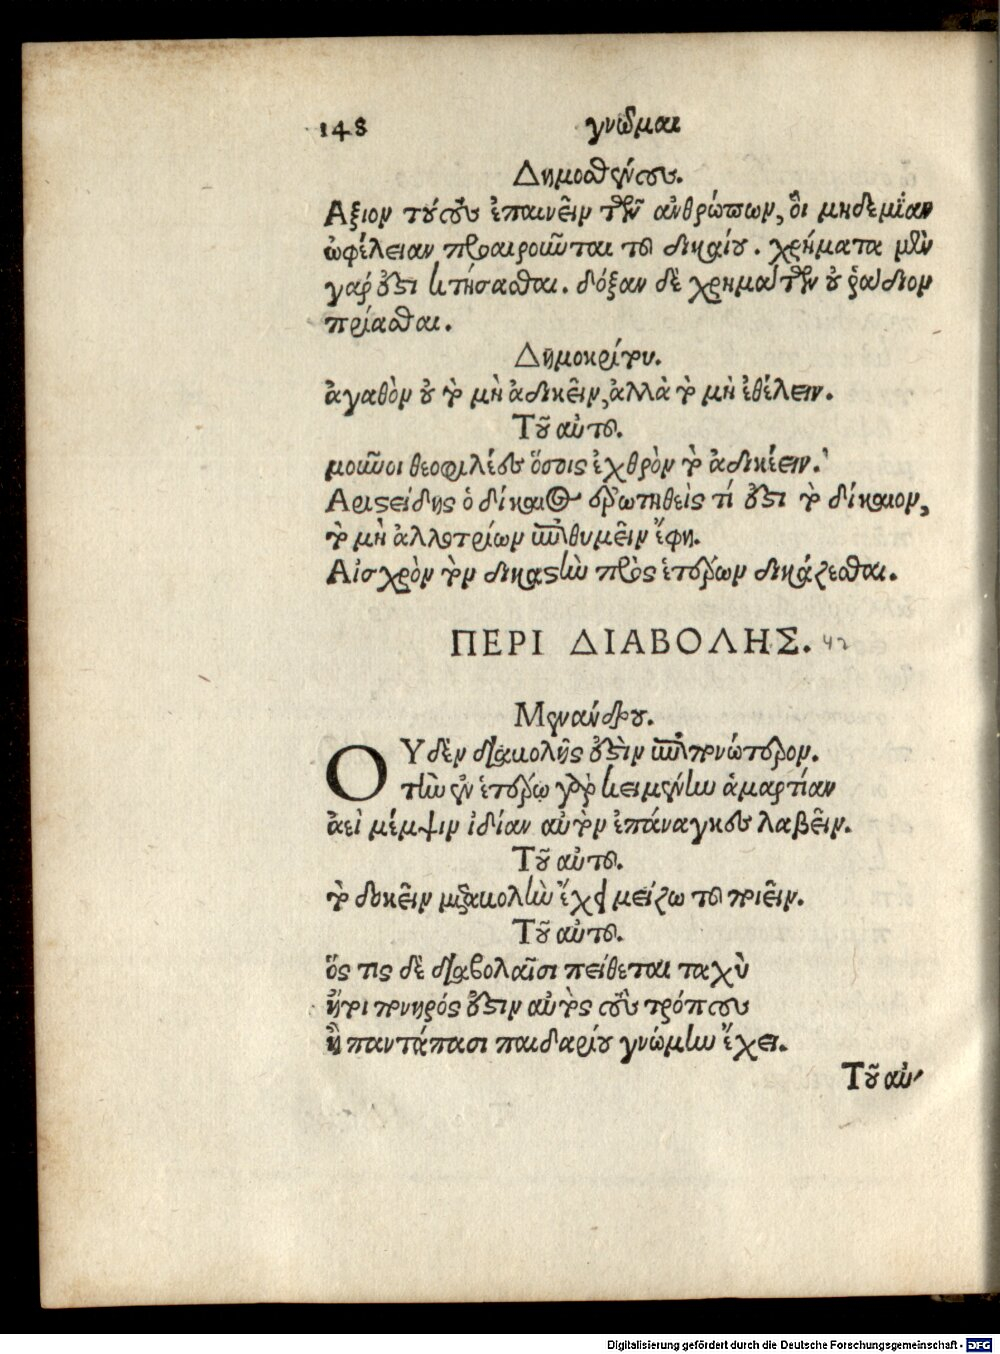 148 γνῶμαι
Δημοσθένους.
Αξιον τούτους ἐπαινεῖν τῶν ἀνθρώπων, οἳ μηδεμίαν
ὠφέλειαν προαιροῦνται τοῦ δικαίου. χρήματα μὲν
γάρ ἐστι κτήσασθαι. δόξαν δὲ χρημάτων οὐ ῥάδιον
πρίασθαι.
Δημοκρίτου.
ἀγαθὸν οὐ τὸ μὴ ἀδικεῖν, ἀλλὰ τὸ μὴ ἐθέλειν.
Τοῦ αὐτοῦ.
μοῦνοι θεοφιλέες ὅσοις ἐχθρὸν τὸ ἀδικέειν.
Αριστείδης ὁ δίκαιος ἐρωτηθεὶς τί ἐστι τὸ δίκαιον,
τὸ μὴ ἀλλοτρίων ἐπιθυμεῖν ἔφη.
Αἰσχρὸν τὸν δικαστὴν πρὸς ἑτέρων δικάζεσθαι.
ΠΕΡΙ ΔΙΑΒΟΛΗΣ. 42
Μενάνδρου.
ΟΥδὲν διαβολῆς ἐστὶν ἐπιπονώτερον.
τὴν ἐν ἑτέρῳ γὰρ κειμένην ἁμαρτίαν
ἀεὶ μέμψιν ἰδίαν αὐτὸν ἐπάναγκες λαβεῖν.
Τοῦ αὐτοῦ.
τὸ δοκεῖν διαβολὴν ἔχει μείζω τοῦ ποιεῖν.
Τοῦ αὐτοῦ.
ὅς τις δὲ διαβολαῖσι πείθεται ταχὺ
ἤτοι πονηρός ἐστιν αὐτὸς τοὺς τρόπους
ἢ παντάπασι παιδαρίου γνώμην ἔχει.
Τοῦ αὐ-
Digitalisierung gefördert durch die Deutsche Forschungsgemeinschaft - DFG